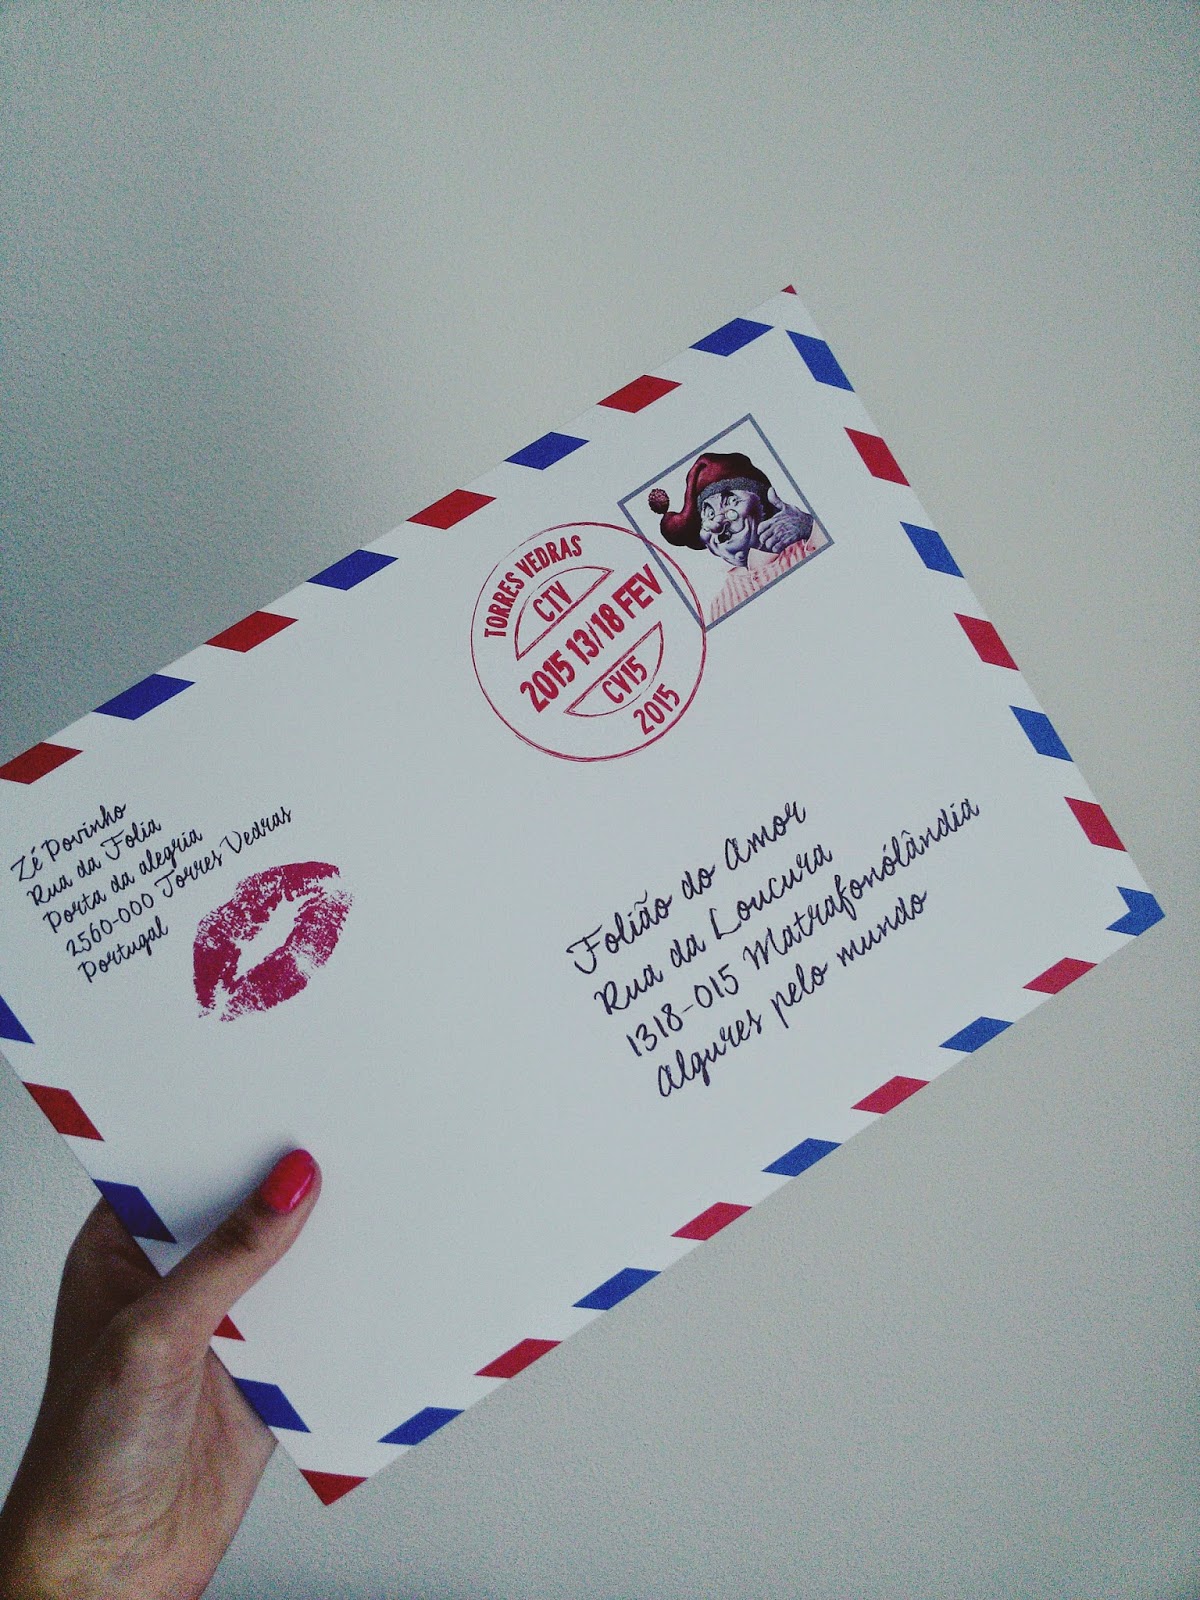 TORRES VEDRAS
CTV
2015 13/18 FEV
CV15
2015
Zé Povinho
Rua da Folia
Porta da alegria
2560-000 Torres Vedras
Portugal
Folião do Amor
Rua da Loucura
1318-015 Matrafonólândia
Algures pelo mundo